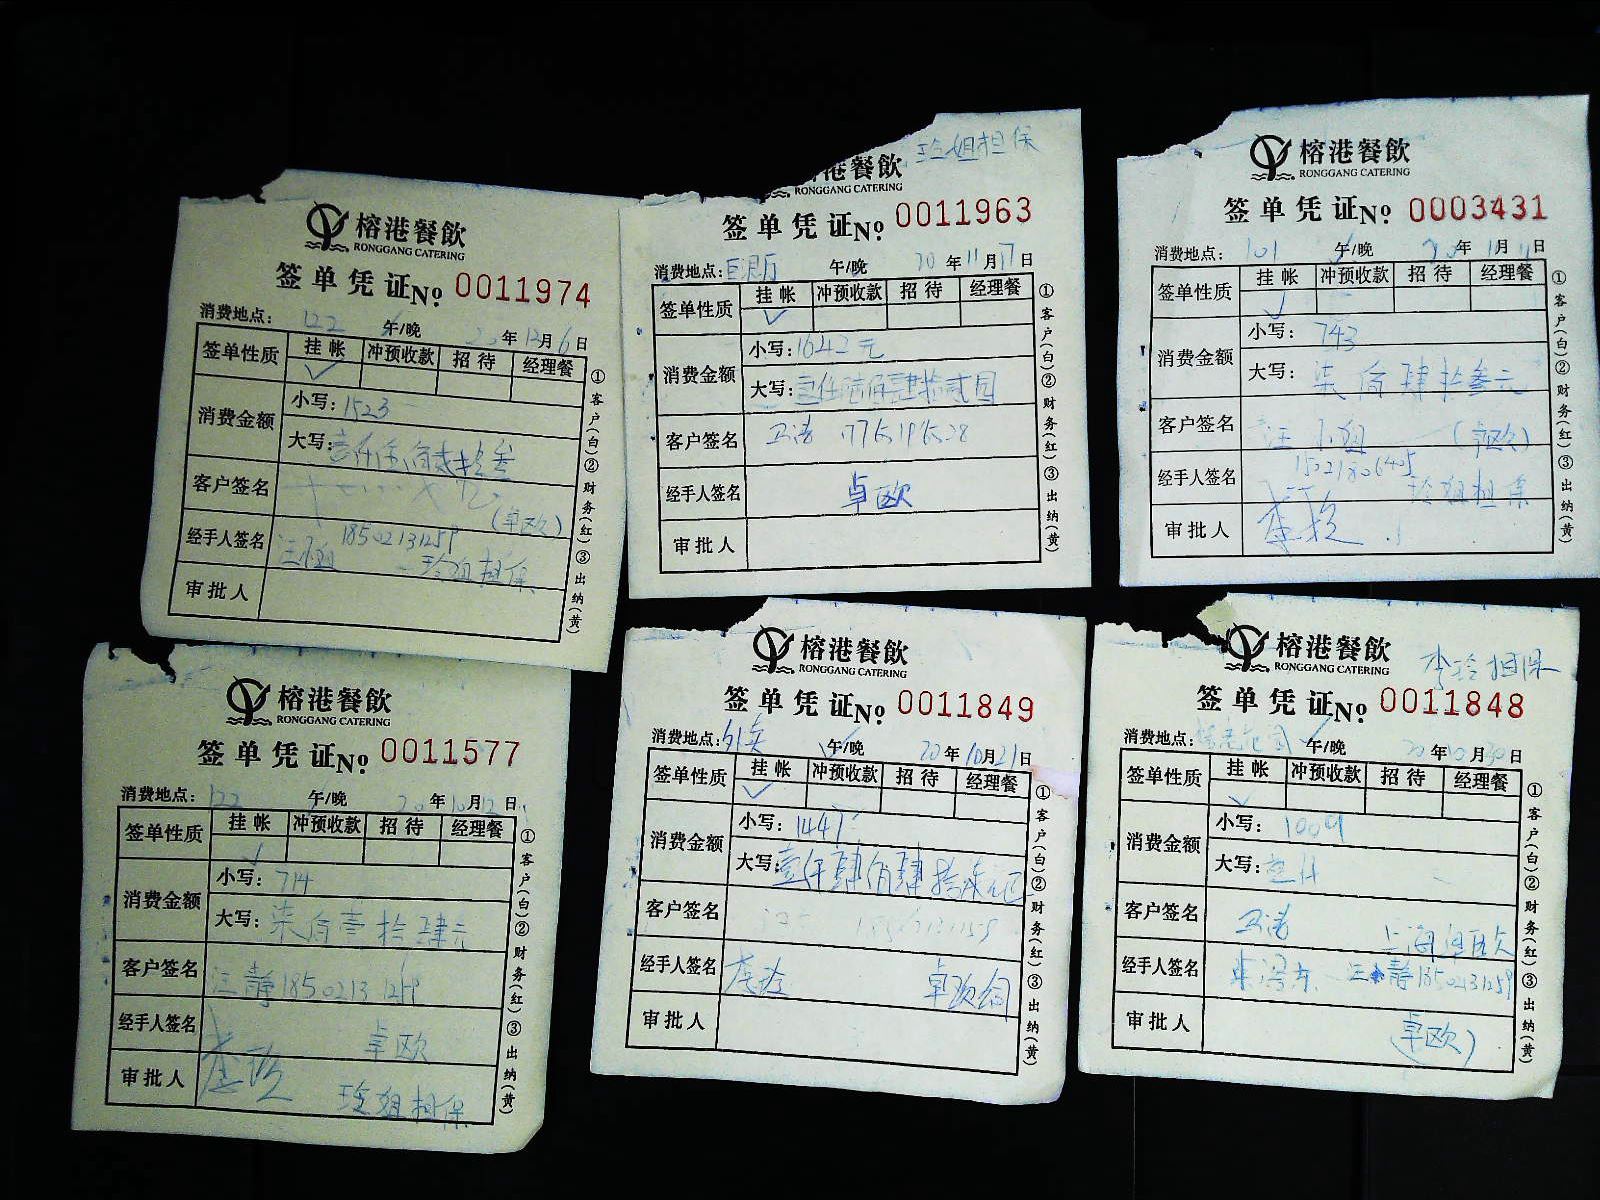 榕港餐飲
RONGGANG CATERING
签单凭证No 0011974
消费地点: 122 午/晚 20年12月6日
签单性质 挂帐 冲预收款 招待 经理餐
消费金额 小写: 1523
大写: 壹仟伍佰贰拾叁
客户签名
(卓欧)
经手人签名 18502131259
汪小姐 玲姐担保
审批人
①客户(白)②财务(红)③出纳(黄)
玲姐担保
港餐飲
RONGGANG CATERING
签单凭证No 0011963
消费地点: 午/晚 20年11月17日
签单性质 挂帐 冲预收款 招待 经理餐
消费金额 小写: 1642元
大写: 壹仟陆佰肆拾贰圆
客户签名
经手人签名 卓欧
审批人
①客户(白)②财务(红)③出纳(黄)
榕港餐飲
RONGGANG CATERING
签单凭证No 0003431
消费地点: 101 午/晚 20年11月11日
签单性质 挂帐 冲预收款 招待 经理餐
消费金额 小写: 743
大写: 柒佰肆拾叁元
客户签名 汪小姐 (卓欧)
经手人签名
玲姐担保
审批人
①客户(白)②财务(红)③出纳(黄)
榕港餐飲
RONGGANG CATERING
签单凭证No 0011577
消费地点: 122 午/晚 20年10月12日
签单性质 挂帐 冲预收款 招待 经理餐
消费金额 小写: 714
大写: 柒佰壹拾肆元
客户签名 汪静 18502131259
经手人签名 卓欧
审批人 李玲 玲姐担保
①客户(白)②财务(红)③出纳(黄)
榕港餐飲
RONGGANG CATERING
签单凭证No 0011849
消费地点: 外卖 午/晚 20年10月21日
签单性质 挂帐 冲预收款 招待 经理餐
消费金额 小写: 1447
大写: 壹仟肆佰肆拾柒元正
客户签名
经手人签名 卓欧
审批人
①客户(白)②财务(红)③出纳(黄)
榕港餐飲
RONGGANG CATERING
李玲担保
签单凭证No 0011848
消费地点: 午/晚 20年10月30日
签单性质 挂帐 冲预收款 招待 经理餐
消费金额 小写: 1009
大写: 壹仟
客户签名 上海
经手人签名 汪静 18502131259
审批人 (卓欧)
①客户(白)②财务(红)③出纳(黄)